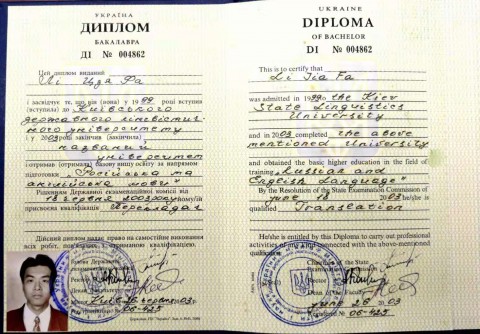 УКРАЇНА
ДИПЛОМ
БАКАЛАВРА
ДІ № 004862
Цей диплом виданий
Лі Цзя Фа
і засвідчує те, що він (вона) у 1999 році вступив
(вступила) до Київського
державного лінгвістич-
ного університету
і у 2003 році закінчив (закінчила)
названий
університет
і отримав (отримала) базову вищу освіту за напрямом
підготовки „Російська та
англійська мови"
Рішенням Державної екзаменаційної комісії від
18 червня 2003 року йому/їй
присвоєна кваліфікація Перекладач
Дійсний диплом надає право на самостійне виконання
всіх робіт, пов'язаних з отриманою кваліфікацією.
Голова Державної
Ректор
Декан факультету
Київ 26 червня 03
06-425
UKRAINE
DIPLOMA
OF BACHELOR
DI № 004862
This is to certify that
Li Jia Fa
was admitted in 1999 to the Kiev
State Linguistics
University
and in 2003 completed the above
mentioned University
and obtained the basic higher education in the field of
training „Russian and
English Language"
By the Resolution of the State Examination Commission of
June 18 2003 he/she is
qualified Translation
He/she is entitled by this Diploma to carry out professional
activities of any kind connected with the above-mentioned
qualification.
Chairman of the State
Examination
Rector
Dean of the Faculty
June 26 2003
Registered №
06-425